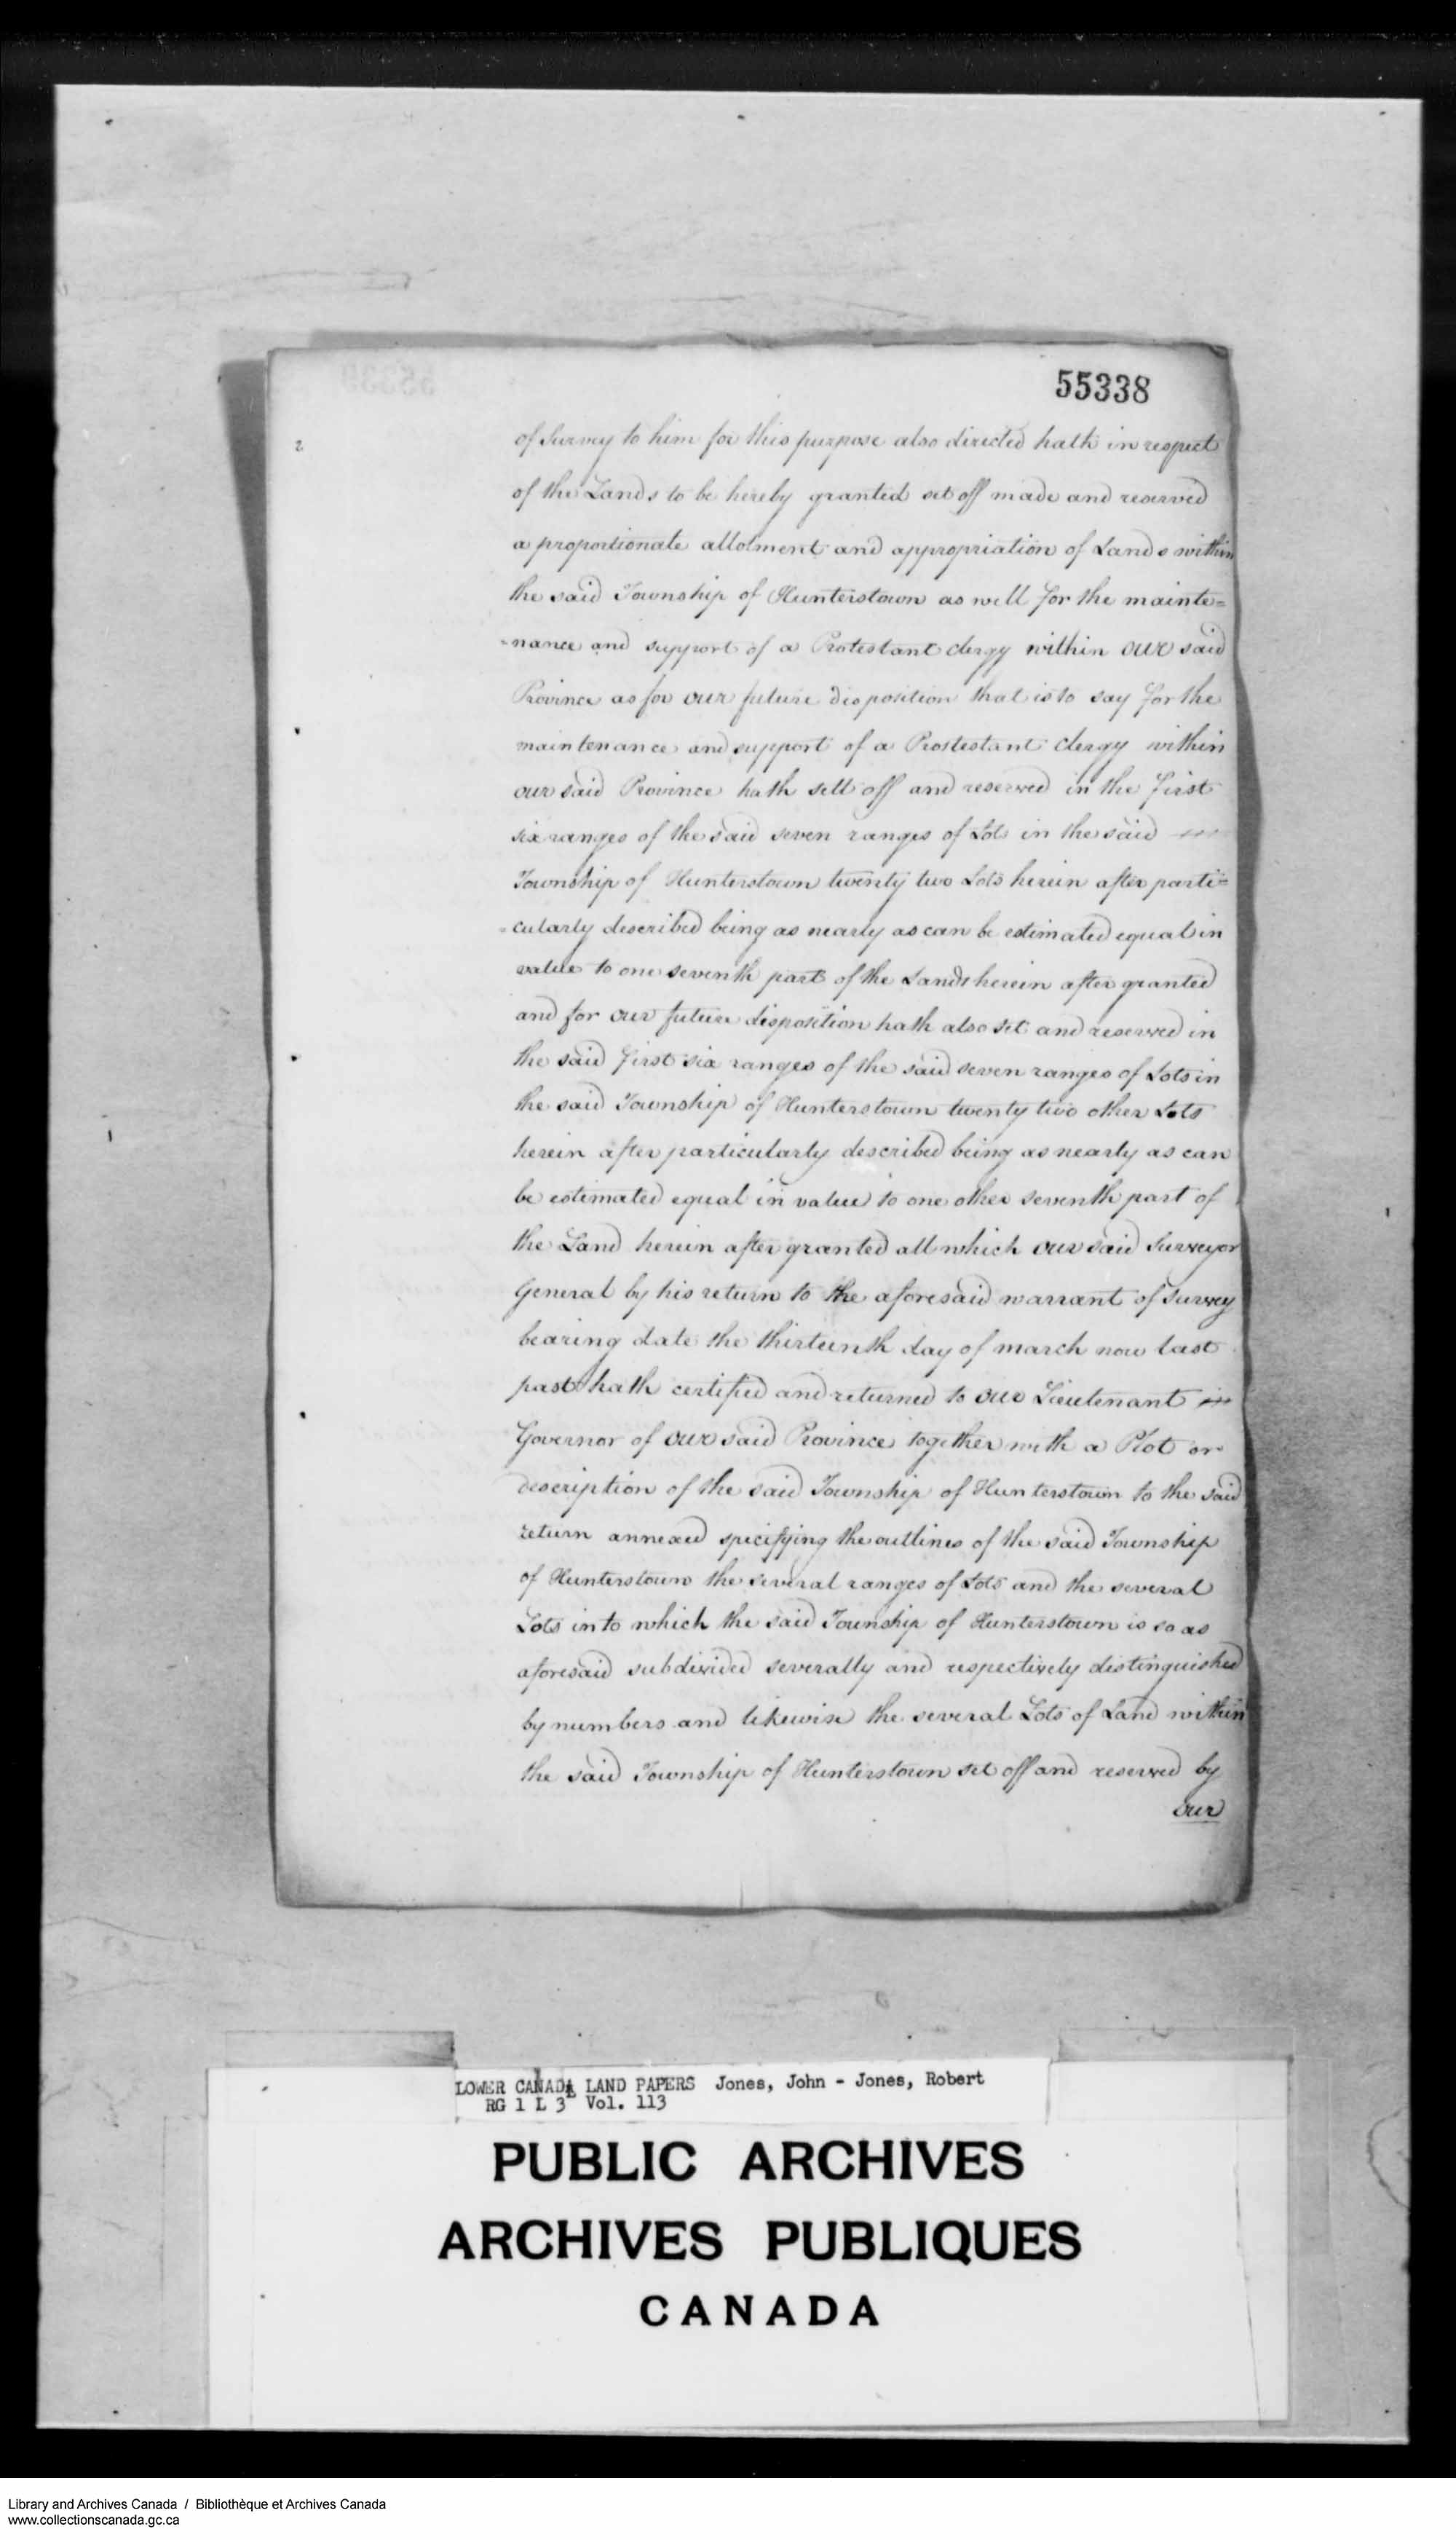 55338
2
of Survey to him for this purpose also directed hath in respect
of the Lands to be hereby granted set off made and reserved
a proportionate allotment and appropriation of Lands within
the said Township of Hunterstown as well for the mainte=
=nance and support of a Protestant clergy within our said
Province as for our future disposition that is to say for the
maintenance and support of a Prostestant Clergy within
our said Province hath sett off and reserved in the first
six ranges of the said seven ranges of Lots in the said
Township of Hunterstown twenty two Lots herein after parti=
=cularly described being as nearly as can be estimated equal in
value to one seventh part of the Lands herein after granted
and for our future disposition hath also set and reserved in
the said first six ranges of the said seven ranges of Lots in
the said Township of Hunterstown twenty two other Lots
herein after particularly described being as nearly as can
be estimated equal in value to one other seventh part of
the Land herein after granted all which our said Surveyor
General by his return to the aforesaid warrant of Survey
bearing date the thirteenth day of march now last
past hath certified and returned to our Lieutenant
Governor of our said Province together with a Plot or
description of the said Township of Hunterstown to the said
return annexed specifying the outlines of the said Township
of Hunterstown the several ranges of Lots and the several
Lots into which the said Township of Hunterstown is so as
aforesaid subdivided severally and respectively distinguished
by numbers and likewise the several Lots of Land within
the said Township of Hunterstown set off and reserved by
our
LOWER CANADA LAND PAPERS Jones, John - Jones, Robert
RG 1 L 3 Vol. 113
PUBLIC ARCHIVES
ARCHIVES PUBLIQUES
CANADA
Library and Archives Canada / Bibliothèque et Archives Canada
www.collectionscanada.gc.ca